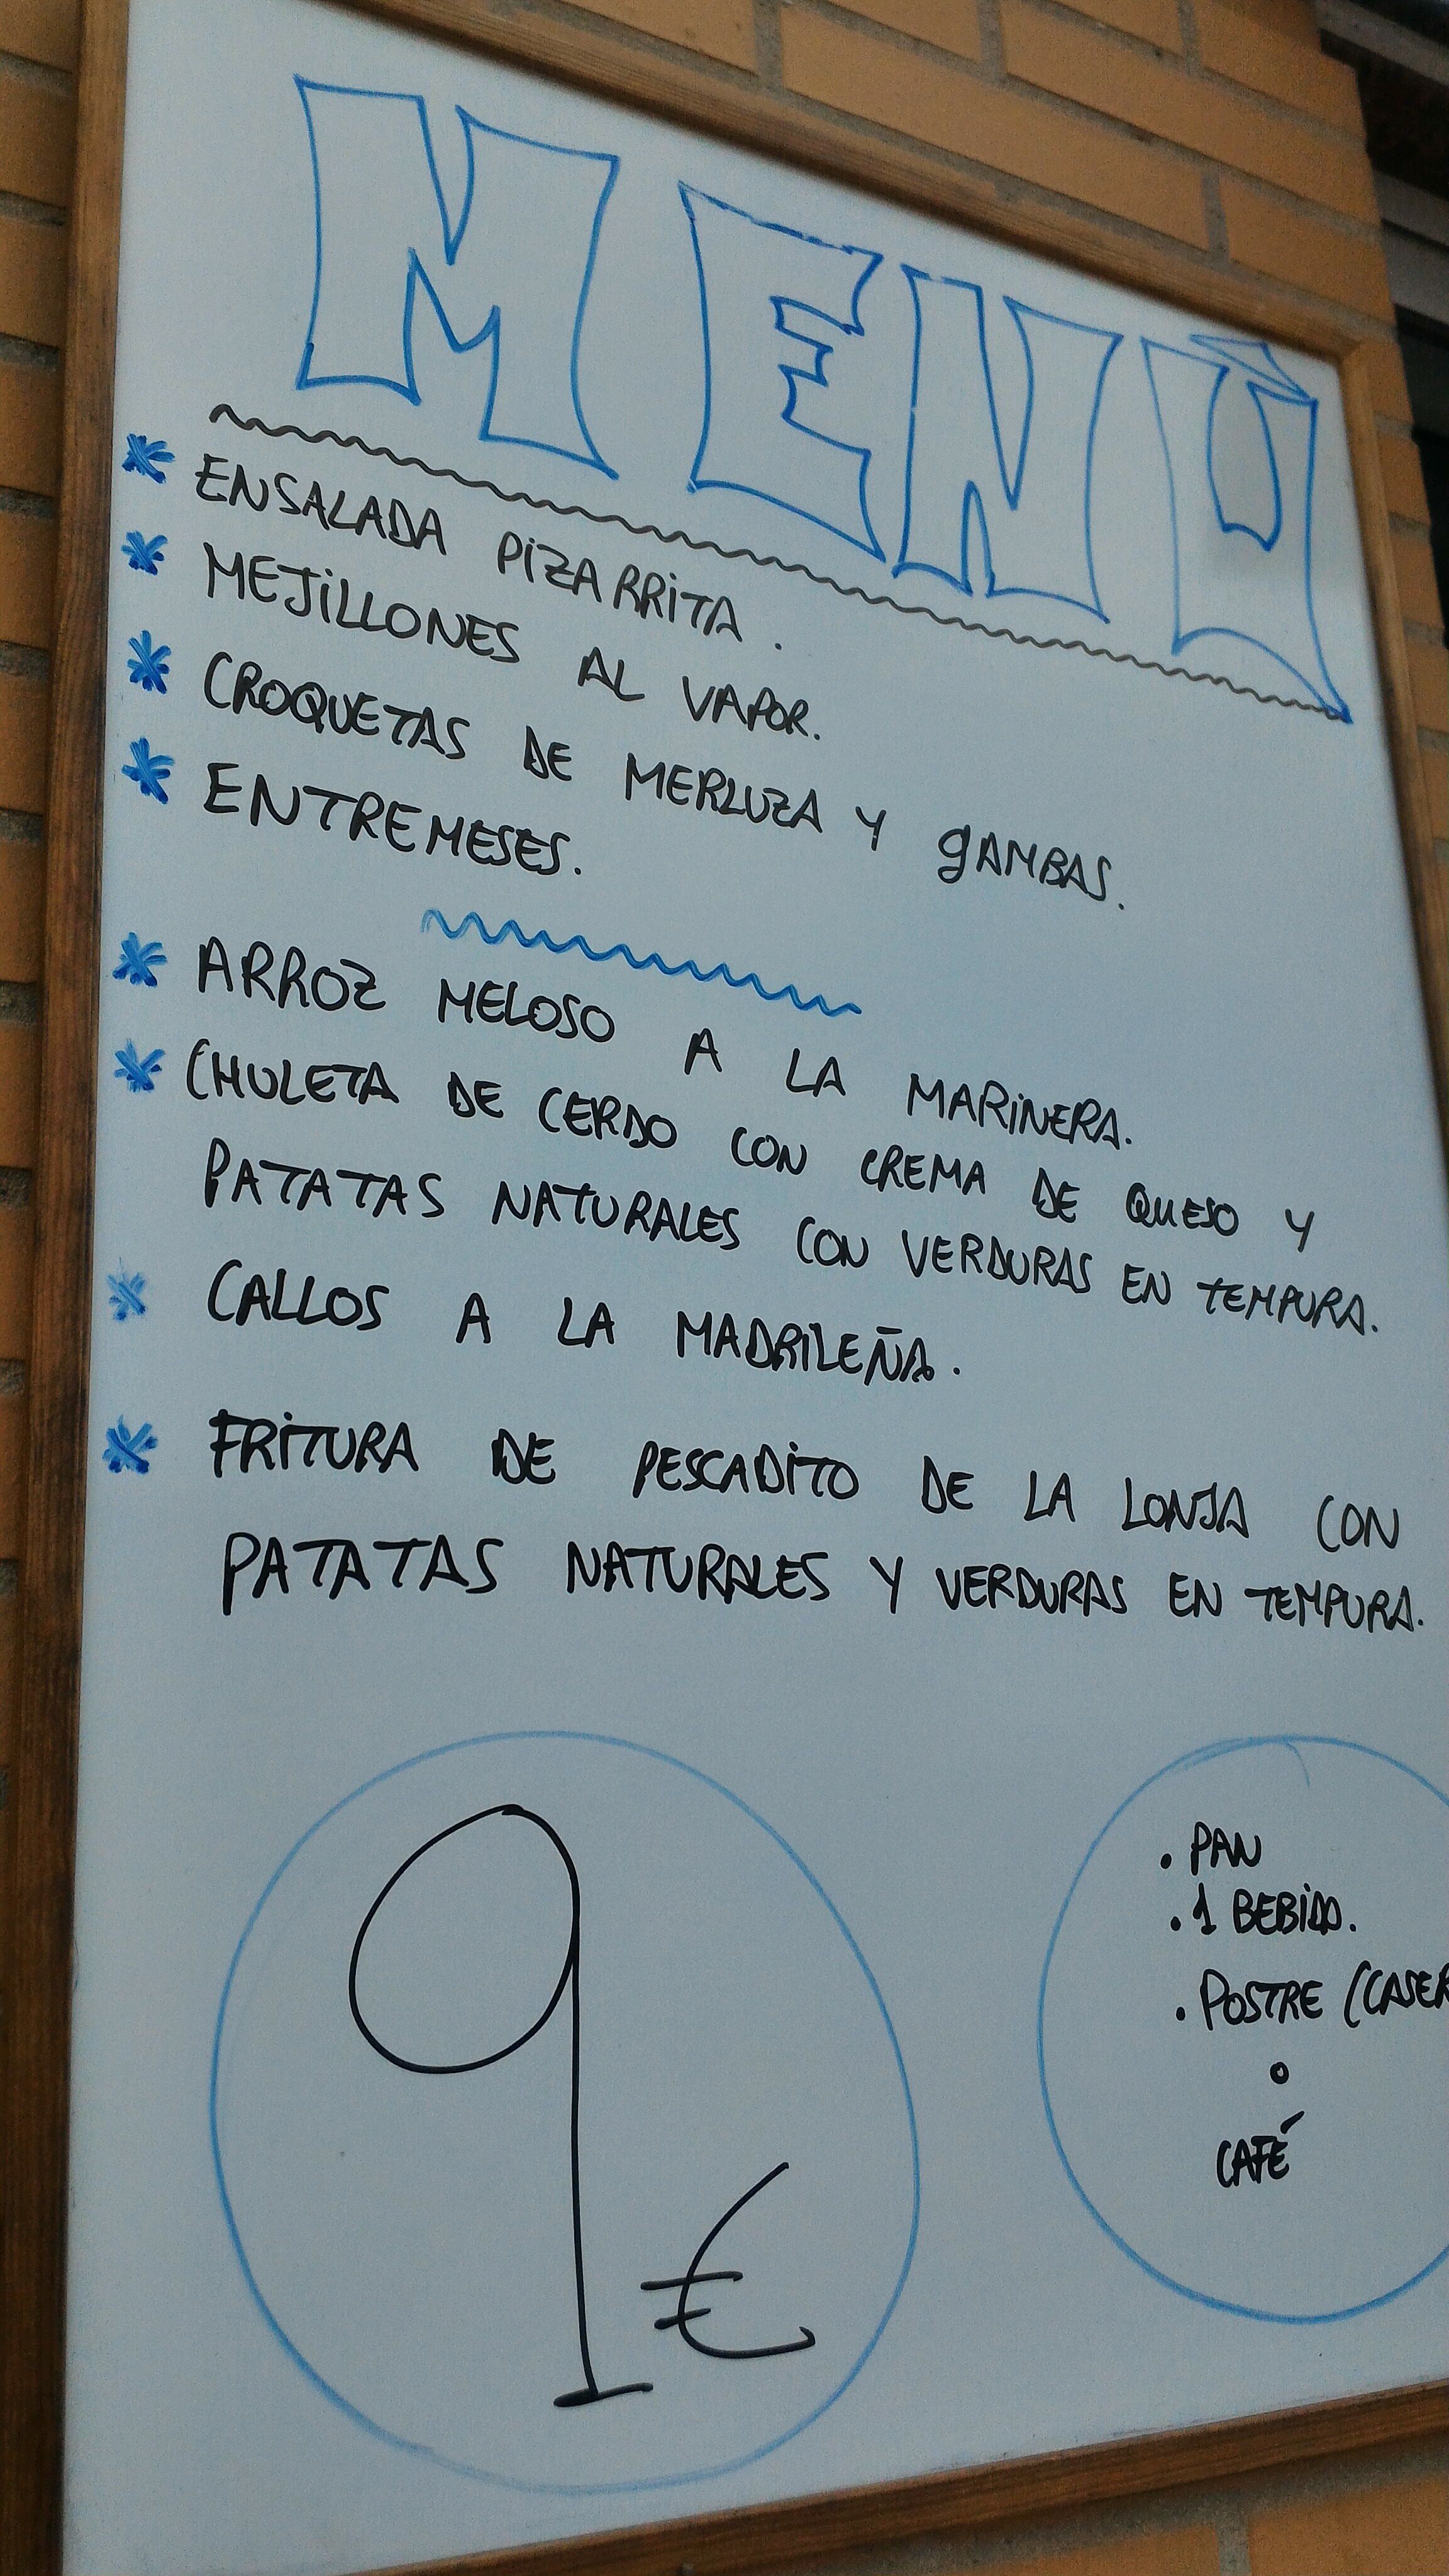 MENÚ
* ENSALADA PIZARRITA.
* MEJILLONES AL VAPOR.
* CROQUETAS DE MERLUZA Y GAMBAS.
* ENTREMESES.
* ARROZ MELOSO A LA MARINERA.
* CHULETA DE CERDO CON CREMA DE QUESO Y
PATATAS NATURALES CON VERDURAS EN TEMPURA.
* CALLOS A LA MADRILEÑA.
* FRITURA DE PESCADITO DE LA LONJA CON
PATATAS NATURALES Y VERDURAS EN TEMPURA.
9€
. PAN
. 1 BEBIDA.
. POSTRE (CASER
o
CAFÉ